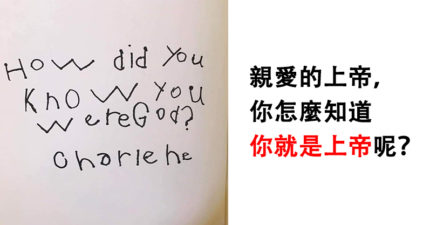 How did You
Know You
wereGod?
Charlene
親愛的上帝,
你怎麼知道
你就是上帝呢?